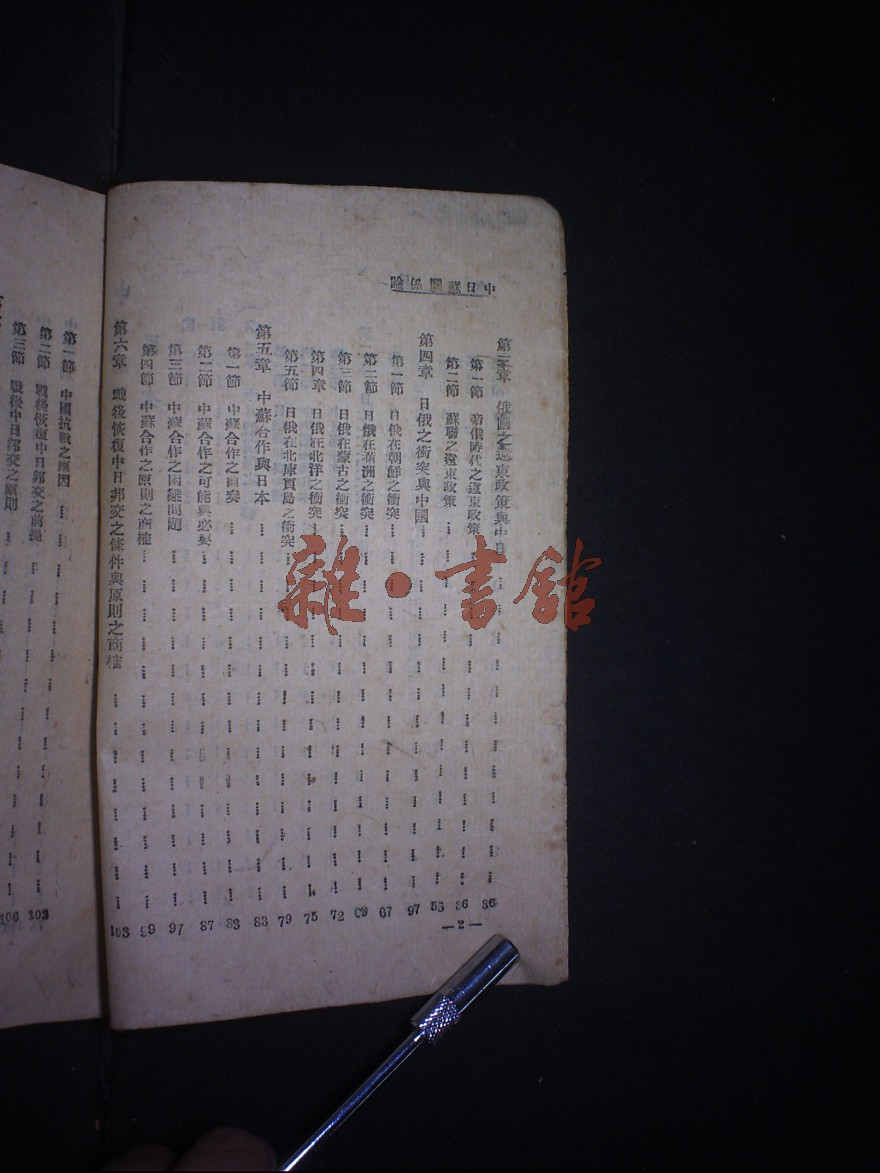 中日蘇關係論
第三章 俄國之遠東政策與中日 36
第一節 帝俄時代之遠東政策 36
第二節 蘇聯之遠東政策 53
第四章 日俄之衝突與中國 97
第一節 日俄在朝鮮之衝突 67
第二節 日俄在滿洲之衝突 69
第三節 日俄在蒙古之衝突 72
第四章 日俄在北洋之衝突 75
第五節 日俄在北庫頁島之衝突 79
第五章 中蘇合作與日本 83
第一節 中蘇合作之需要 83
第二節 中蘇合作之可能與必要 87
第三節 中蘇合作之困難問題 97
第四節 中蘇合作之原則之商榷 99
第六章 戰後恢復中日邦交之條件與原則之商榷 103
—2—
第一節 中國抗戰之原因
第二節 戰後恢復中日邦交之前提 103
第三節 戰後中日邦交之原則 106
雜·書館